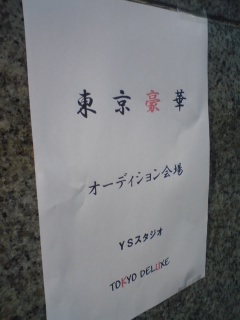 東京豪華
オーディション会場
YSスタジオ
TOKYO DELUXE